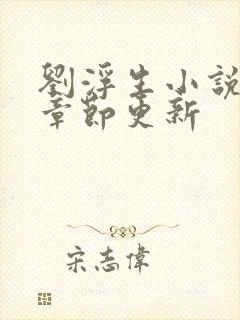 劉浮生小說
章節更新
宋志偉